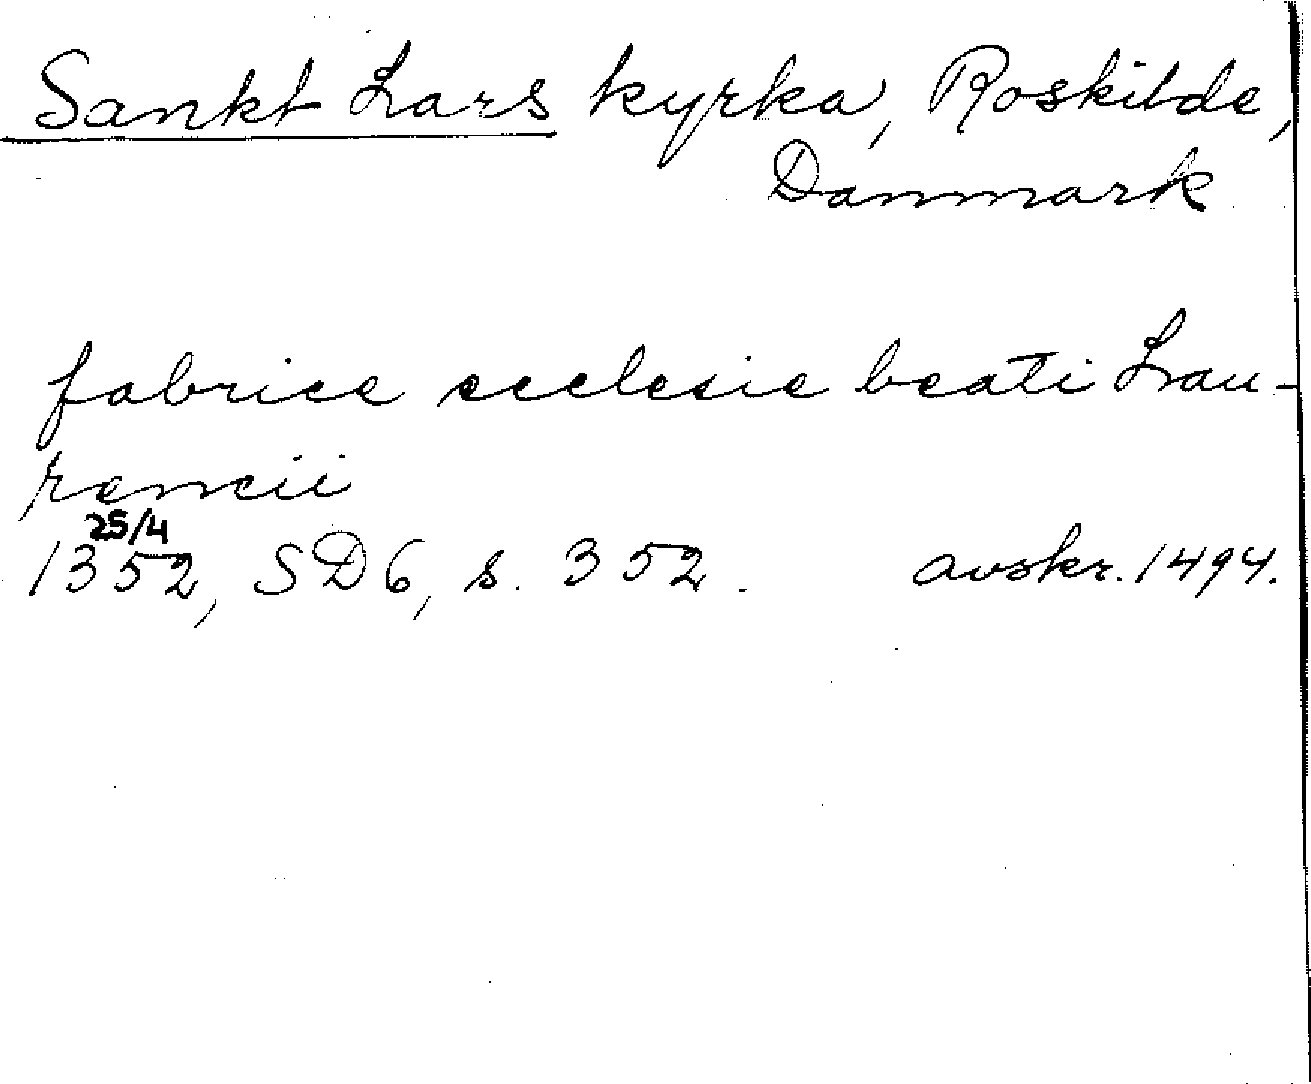 Sankt Lars kyrka, Roskilde,
Danmark
fabrice ecclesie beati Lau-
rencii
25/4
1352, SD6, s. 352. avskr. 1494.